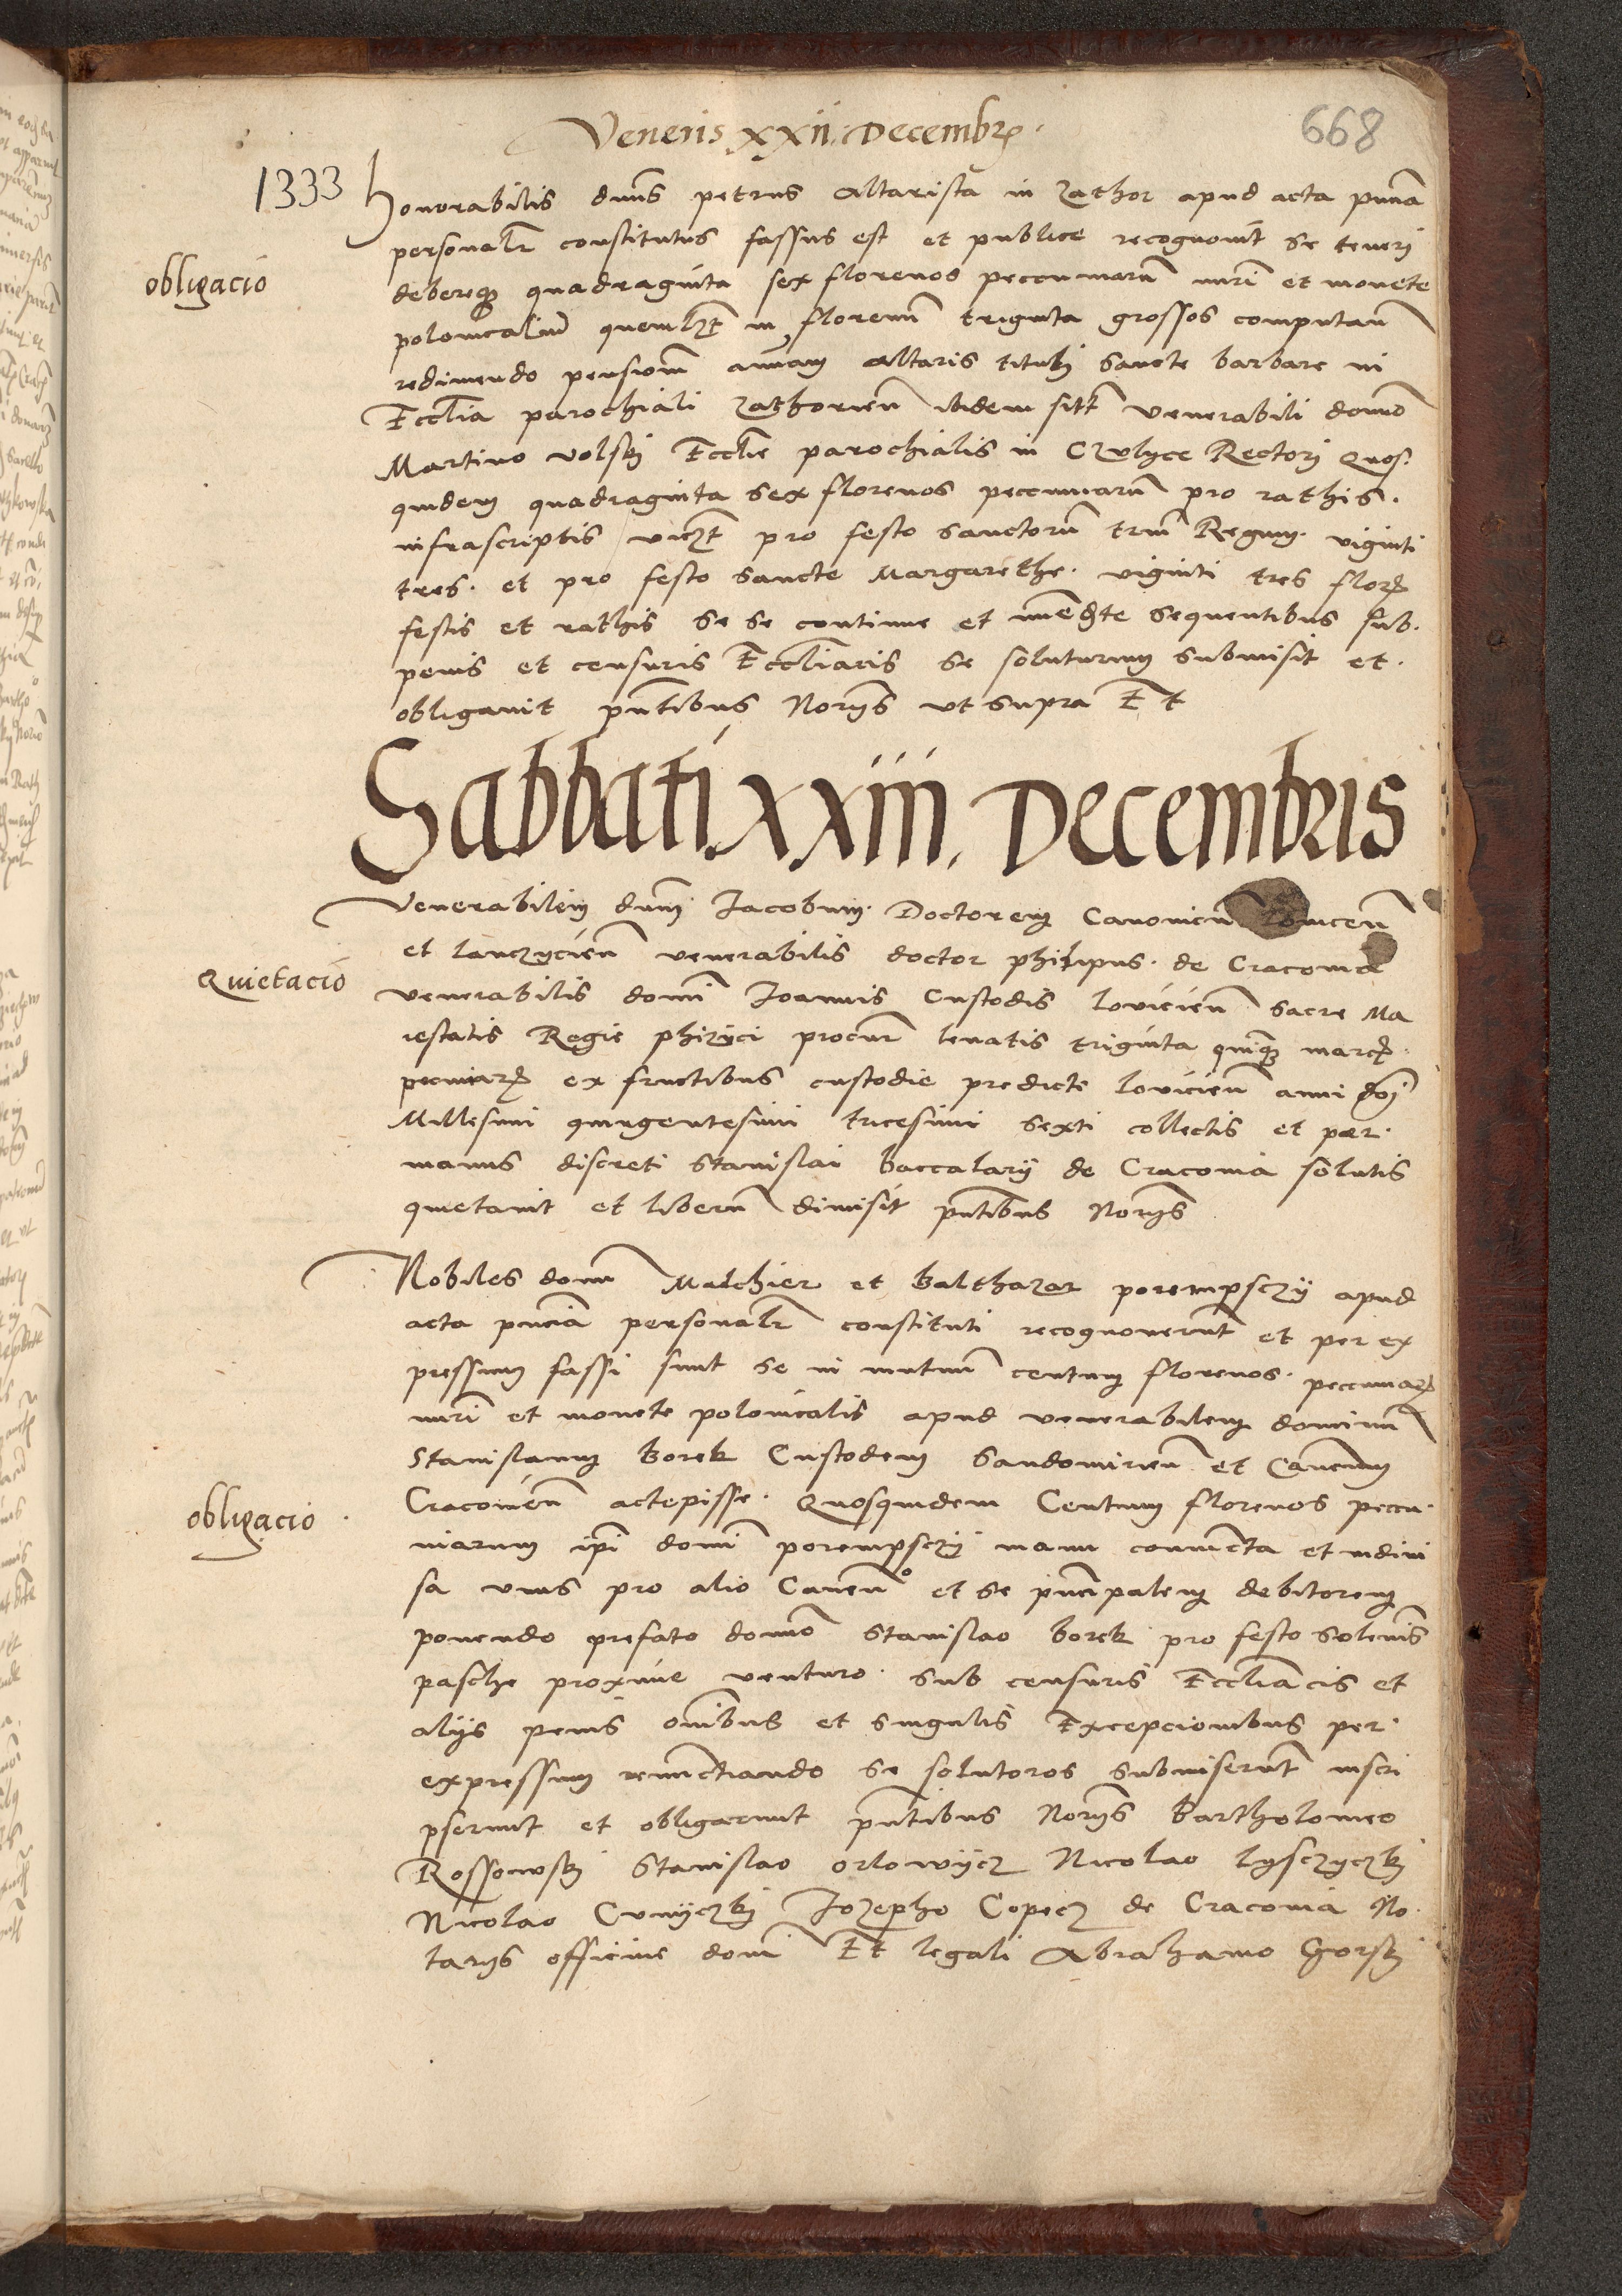 Veneris xxii Decembr
668
1333
honorabilis dnus petrus altarista in Zathor apud acta pnna
personalr constitutus fassus est et publice recognovit se teneri
obligacio
debereque quadraginta sex florenos peccuniarum nuri et monete
polonicaliu quemlzt in florenu triginta grossos computan
redimendo pensionem annuam altaris tituli sancte barbare in
Ecclia parochiali Zathorien ibidem sitt venerabili domino
Martino volski Ecclie parochialis in Rectori quos
quidem quadraginta sex florenos peccuniaru pro rathis
infrascriptis viczt pro festo sanctoru triu Regum viginti
tres et pro festo sancte Margarethe viginti tres flor
festis et rathis se se continue et immediate sequentibus sub
penis et censuris Eccliaris se soluturum submisit et
obligavit pntibus Norys ut supra Et
Sabbati xxiii Decembris
Venerabilem dnm Jacobum Doctorem Canonicu
et lanczycien venerabilis doctor philipus de Cracovia
Quietacio
venerabilis domi Joannis Custodis lovicien sacre Ma
iestatis Regie phizyci procur levatis triginta quinque marc
pecuniar ex fructibus custodie predicte lovicien anni doi
Millesimi quingentesimi tricesimi sexti collectis et per
manus discreti Stanislai baccalarij de Cracovia solutis
quietavit et liberu dimisit pntibus Norys
Nobiles domi Melchier et Balthazar porempsczij apud
acta pncia personalr constituti recognoverunt et per ex
pressum fassi sunt se in mutuu centum florenos peccuniar
nuri et monete polonicalis apud venerabilem dominu
Stanislaum Borek Custodem Sandomirien et Canonicum
obligacio
Cracovien accepisse Quosquidem Centum florenos peccu
niarum ipi domi porempsczij manu coniuncta et indivi
sa unus pro alio Caven et se pncipalem debitorem
ponendo prefato domno Stanislao borek pro festo solenis
pasche proxime venturo sub censuris Eccliacis et
alijs penis omibus et singulis Excepcionibus per
expressum renunctiando se solutoros submiserunt inscri
pserunt et obligarunt pntibus Norys Bartholomeo
Rossowski Stanislao orlowijcz Nicolao
Nicolao Jozepho Copecz de Cracovia No
tarys officine domi Et legali Abrahamo Gorski